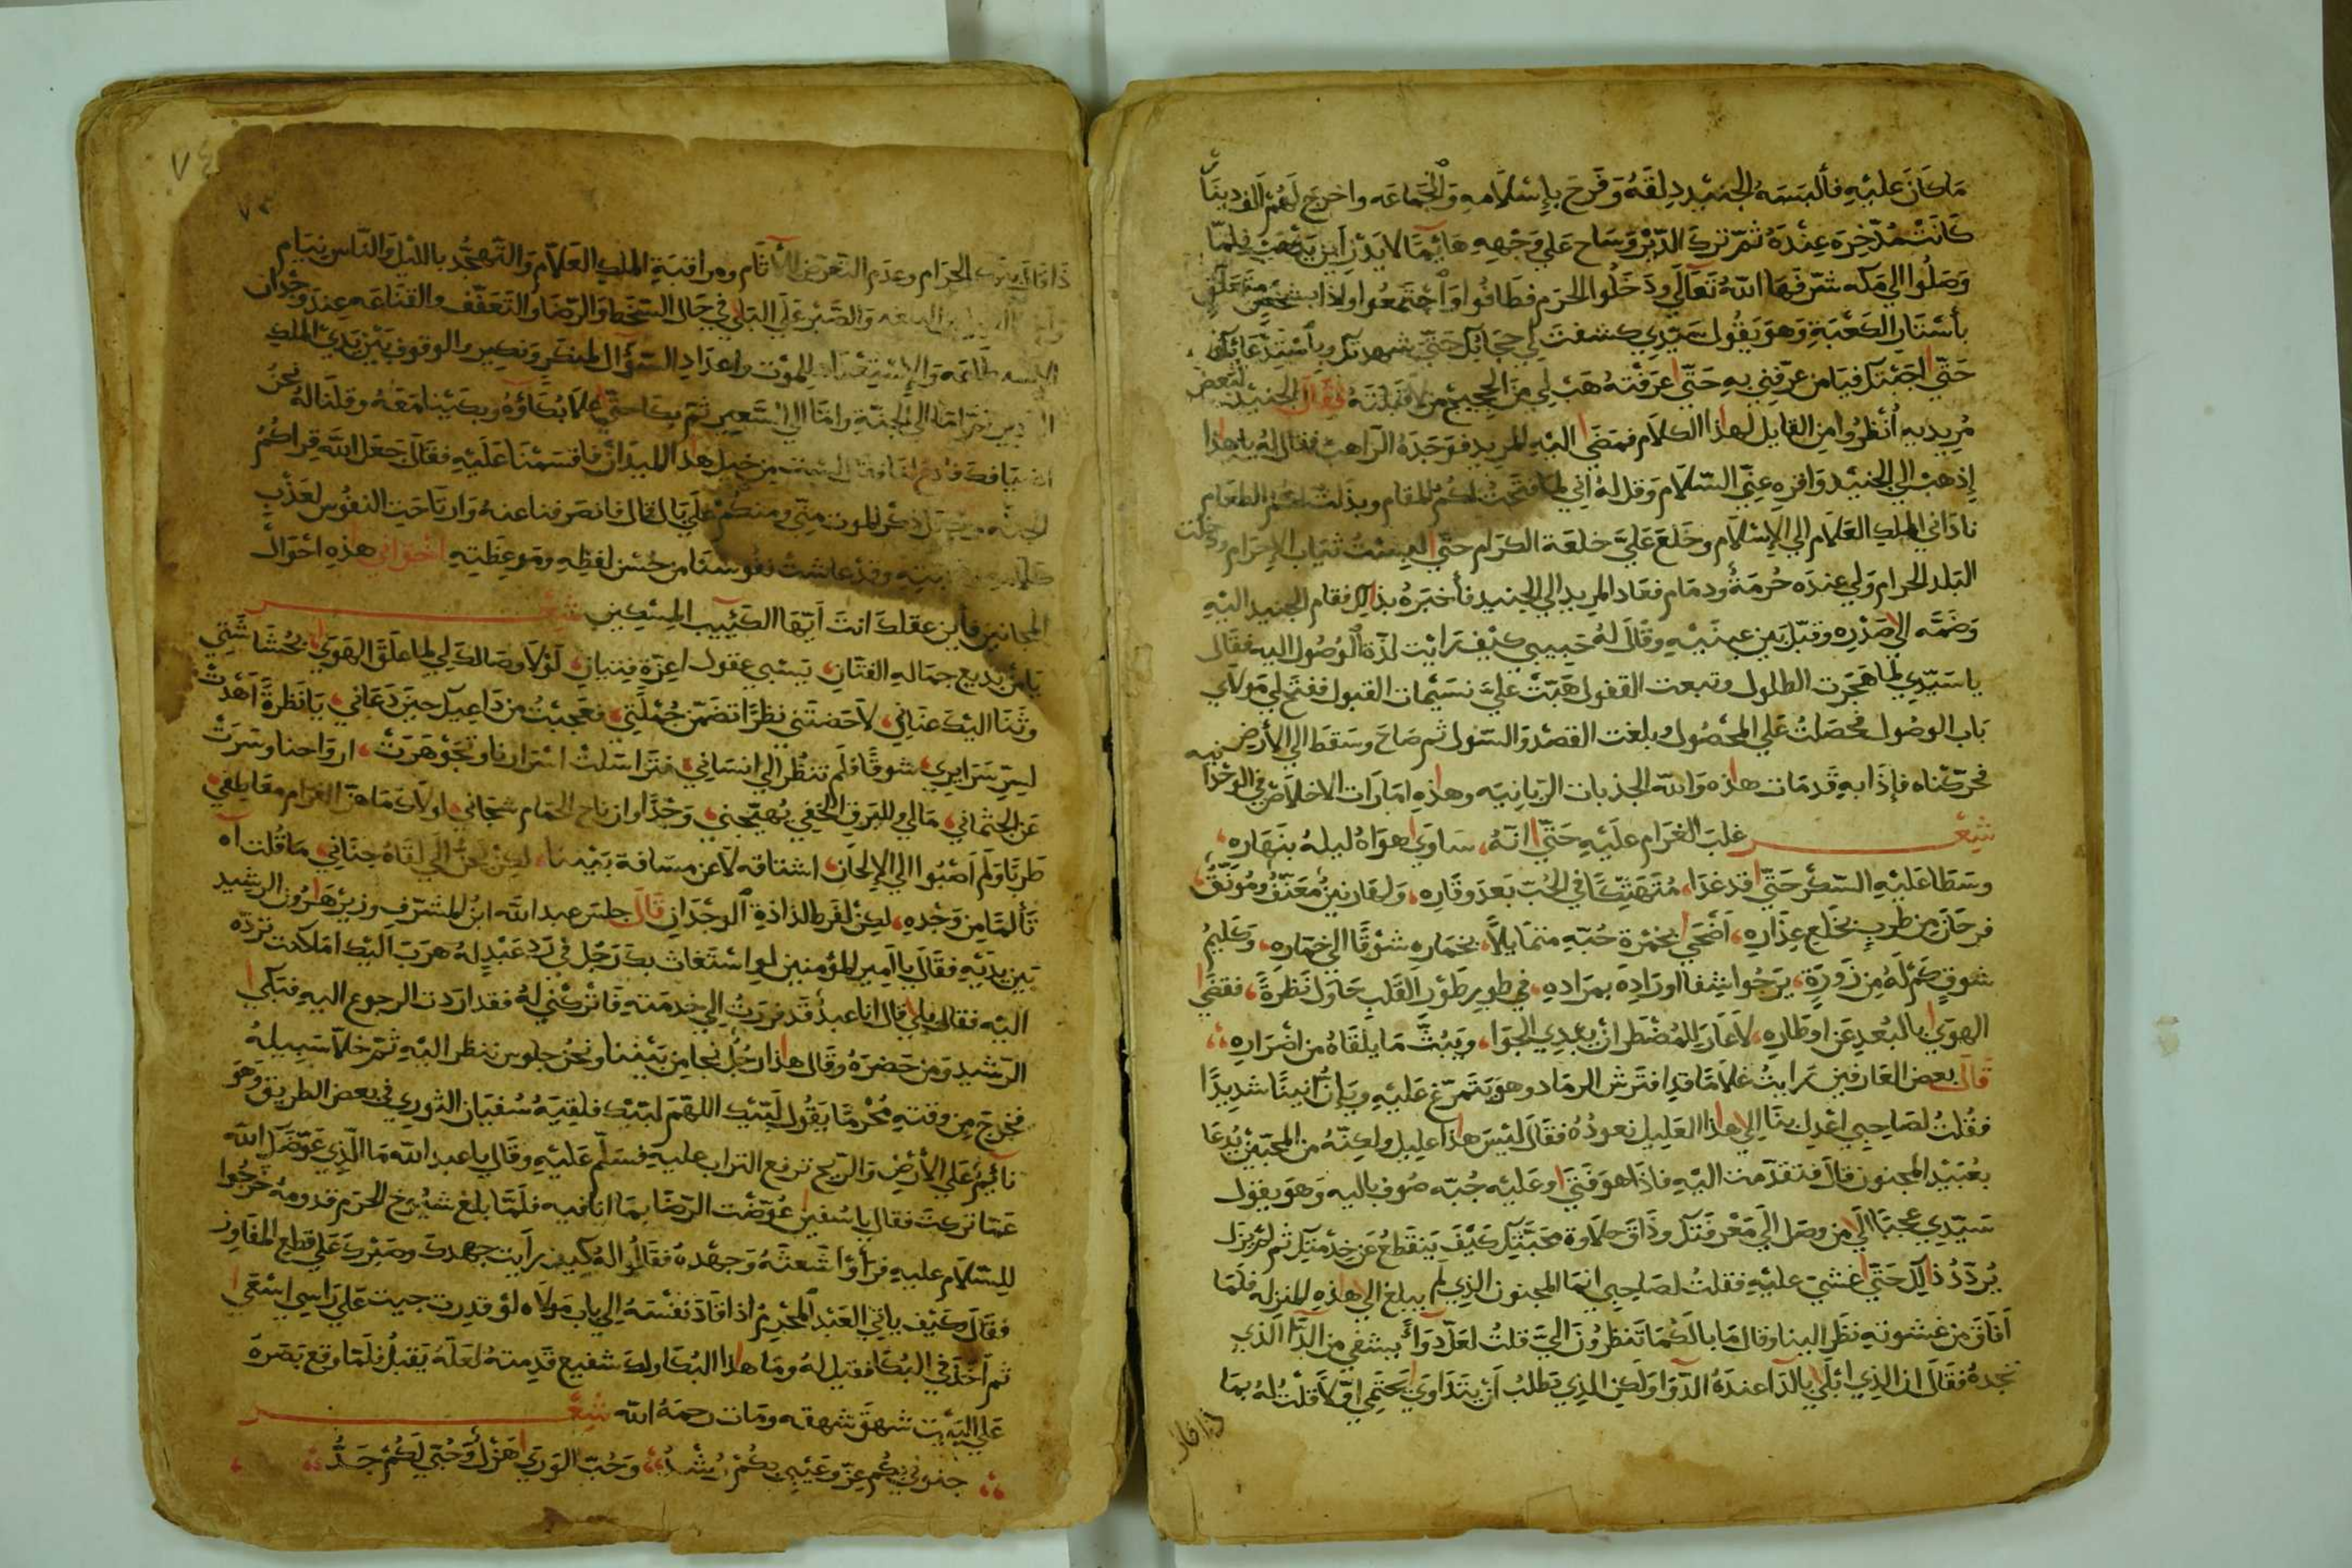 مَا كَانَ عليْهِ فألبسَهُ الجنيْد دِلقَهُ وَفَرحَ بإسْلَامهِ وَالْجَمَاعَه واخرجَ لَهُمْ الف دينَار
كَانَتْ مُدّخِرَه عِنْدَهُ ثمّ تركَ الدّيْرَ وَسَاح علي وَجْهِهِ هَائِمًا لايَدْرِ اَين يَذْهَبْ فلمّا
وَصَلُوا الي مَكه شرّفهَا اللّهُ تَعَالَي ودَخلُوا الحرَم فطَافُوا وَاجْتَمعُوا واذا بشخْصٍ متعَلّق
بأسْتَارِ الكَعْبَةِ وَهوَ يَقُول سَيّدِي كشفتَ لي حجَابَك حَتّي شهدتك وباسْتِدْعَايك
حَتّي اجَبْتك فيَا مَن عرّفنِي بهِ حَتّي عَرَفتهُ هَبْ لي مِنَ الحجيج مَن لا قَبلتَهُ فقَالَ الجنيْد لبَعض
مُريدِيهِ اُنْظرُوا مِن القايل لهذا الكلَام فمَضَي اليْهِ المريد فوَجَدَهُ الرّاهبْ فقال لهُ يا هذا
إذهبْ الي الجنيْد وَاقرِهِ عنِّي السّلَام وَقل لهُ انِي لما فتَحتُ لكمْ المقام وبذلتُ لكم الطعَام
نادَاني الملِك العَلَام الي الإسْلَام وخَلعَ عَليَّ خلعَة الكرَام حتّي البِسْتُ ثيَاب الإحرَام ودخلت
البَلد الحرام وَلي عِندَه حُرمَةٌ وذمَام فعَاد المريد الي الجنيد فأخبَرهُ بذلك فقام الجنيد اليْهِ
وَضَمّه الي صَدْرِه وقبّل بَين عينَيْهِ وقَالَ لهُ حَبِيبي كيْف رَايْت لذّة الوُصُول اليه فقَال
يا سَيّدِي لما هَجَرت الطلول وتبعت القفول هَبّتْ عَليَّ نسَيْمات القبول ففتحَ لي مَولاي
بَاب الوصُول فحصَلتُ عَلي المحصُول وبلغت القصْد وَالسّول ثم صَاحَ وسَقطَ الي الأرض
فحرّكنَاه فإذَا بهِ قَد مَات هذه وَالله الجذبات الربّانِيّه وهذهِ امَارَات الاخلَاص في الوَحْدَانيه
شِعْـــر غلبَ الغرَام عليْهِ حَتّي انّهُ، سَاوَي هوَاهُ ليلهُ بنَهَاره،
وسَطَا عَليْهِ السّكرُ حَتّي قد غدَا، مُتَهَتِّكًا في الحُبّ بَعدَ وقَارِه، وَلهُ قرينٌ مُعَنّفٌ ومُوَنّقٌ،
فرحَان من طربٍ بخَلع عِذَارِه، اَضْحَي بخمْرة حُبّهِ متمَايلًا، بخمَارِهِ شوْقًا الي خمّارِه، وَكليمُ
شوقٍ كَمْ لَهُ مِن زَورَةٍ، يَرجُوا شِفَا اورَادِه بمرَادِهِ، في طورِ طَوْرِ القَلبِ حَاوَل نَظرةً، فقضَي
الهوَي بالبُعدِ عَن اوطَارِه، لَا عَارَ للمُضْطَر اَنْ يبدِي الجوَا، ويَبُثّ مَا يلقَاهُ من اضْرَارِه،،
قَالَ بعض العَارفين رَايتُ غلَامًا قد افتَرَش الرمَاد وهوَ يَتَمرّغ عَليْهِ ويَإنّ اَنينًا شديدًا
فقُلتُ لصَاحِبي اعْدِل بنَا الي هذا العَليل نعودُهُ فقَال ليْسَ هذا عليل ولكنّهُ من المحبّين يُدعَا
بعُبَيْد المجنون قال فتقدّمت اليْهِ فاذا هوَ فَتَي وعَليْه جُبّه صُوف باليه وَهوَ يقول
سَيّدِي عجبًا الَي مِن وصَل الَي مَعْرفَتك وذَاق حلَاوة محبَّتك كَيْفَ يَنقطعُ عَن خِدْمتِك ثم لَمْ يزَل
يُردّدُ ذلِكَ حَتّي غشيَ عليْهِ فقلتُ لصَاحِبي انمَا المجنون الذِي لم يبلغ الي هذهِ المنزله فلَمّا
اَفاقَ من غشوتهِ نظَر الينا وقال مَا بالكُم تَنظرُونَ اليَّ قلتُ لعَلّ دَوَاًء يشفي من الدّا الّذي
نجدهُ فقَالَ ان الّذِي ابْلَي بالدّا عندَهُ الدّوَا وَلَكن الذِي يَطلبُ اَنْ يتَدَاوَي يَحْتَمي اوّلًا قلْتُ لهُ بمَا
ذا قال
٧٤
ذا قالَ بتركِ الحرَام وعدَم التّعَرض للآثَام ومراقبَةِ الملكِ العَلّام وَالتّهجُّد بالليْل وَالنّاس نيَام
بالبلغه وَالصّبْر عَلَي البَلَي في حَال السّخَط وَالرّضَا وَالتّعَفّف والقنَاعَه عِندَ وجْدَان
وَالإسْتِعْدَاد للموْت واعدَادِ السّؤَال لمنكَر وَنكِير والوقوف بَيْن يَدَي الملكِ
امّا الَي الجنّةِ وامّا الي السّعير ثمّ بكَا حتّي علَا بُكَاؤُهُ وبكَيْنا معَهُ وقلنَا لهُ نَحنُ
من خيل هذا الميدَان فاقسَمْنَا عَليْهِ فقَال جَعَل اللّه قِرَاكمُ
الجنّه ذكْر الموت منّي ومنكُمْ عَلي بَال قال فانصَرفنا عنهُ وَارتَاحَتِ النفُوس لعَذْبِ
وقدْ عَاشتْ نفُوسنَا من حُسْن لفظِهِ ومَوعِظَتِهِ اخْوَاني هذهِ احْوَالُ
المجَانين فأين عقلكَ انتَ اَيّهَا الكئِيب المسْكين شعْـــر
يَا مَنْ بديع جمَالهِ الفتّان، يَسْبي عقول اعِزّةِ فِتيانِ، لَوْلَا وصَالكَ لي لما علقَ الهوَي، بحُشَاشَتي
وثَنَا اليْكَ عنَاني، لَاحَضتَني نظَرًا تضمّن جُمْلَتي، فعَجبْتُ من دَاعيك حِينَ دَعَاني، يَا نَظرةً اَهْدَتْ
لسِرّ سَرَايرِي، شوقًا فلَم تنظُر الَي انسَاني، فترَاسَلتْ اسْرَارنا وتجَوْهَرَتْ، اروَاحنا وسَرتْ
عَن الجثمَاني، مَا لي وللبَرق الخفِي يُهيّجني، وَجْدًا وان نَاح الحَمام شجَاني، لولَاكَ مَا هزّ الغرَام معَاطِفي
طَربًا وَلَم اَصْبُوا الي الإلحَان، اشتَاقه لَا عن مسَافة بَيْننا، لكِن نحنُّ الَي لِقَاهُ جنَاني، مَا قُلت اه
تَألّمًا مِن وَجْدِهِ، لكِن لفَرط لذَاذةِ الوجْدَانِ قَالَ جلسَ عبد اللّه ابنُ المشرّف وزيرْ هَارُون الرشيد
بَين يدَيْهِ فقَال يا اَمِير المؤمنين لوِ اسْتَغَاثَ بكَ رَجُل في رَدّ عَبْدٍ لهُ هرَبَ اليْك امَا كنت تردّه
اليْه فقال بلي قال انا عبدٌ قد فررَتُ الي خدمَتهِ فَاتْركْني لهُ فقد اردت الرجوع اليهِ فبَكي
الرّشيد وَمَن حَضرَهُ وقَال هذا رَجُل نجَا مِن بيْننا ونحنُ جلوس ننظر اليْهِ ثمّ خلّا سَبِيلهُ
فخرجَ مِن وقتهِ مُحْرمًا يَقُول لَبّيْك اللّهُمّ لبّيْك فلقِيَهُ سُفيَان الثوري في بعض الطريق وَهوَ
نائِمٌ عَلي الأَرْض وَالرّيح ترفع التراب عليْهِ فسَلّم عَليْهِ وقَال يا عبد اللّه مَا الّذي عَوّضَك اللّه
عَمّا تركتَ فقال يا سُفين عُوّضْت الرّضَا بمَا انا فيه فلَمّا بلغ شيُوخ الحرَم قدومهُ خَرجُوا
للسّلَام عليْهِ فرَأوْا شَعَثَهُ وَجهْدهُ فقَالُوا لهُ كيف رَايت جهدكَ وصَبْركَ عَلي قطع المفَاوز
فقَال كيْف يأتي العَبْد المجْرِم اذا قَادَ نفْسَهُ الي بَاب مَولَاه لوْ قدرت جيت عَلي رَاسِي اسْعَي
ثم اَخَذ في البُكَا فقيل لهُ ومَا هذا البُكَا ولكَ شفيع قدِمتهُ لعَلّهُ يَقبلُ فلمّا وقع بَصَرهُ
عَلي البَيْت شهِقَ شهقه ومَات رحمَهُ اللّه شِعْـــر
جنونِي بكُم عزّ وعَيْبي بكُمْ رُشدُ، وَحُبّ الوَرَي هَزْلٌ وَحُبّي لكُمْ جَدُّ